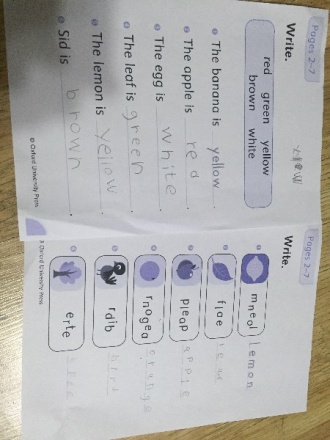 Pages 2–7
Write.
red green yellow
brown white
The banana is yellow.
The apple is red.
The egg is white.
The leaf is green.
The lemon is yellow.
Sid is brown.
© Oxford University Press
Pages 2–7
Write.
mneol lemon
flae
pleap apple
rnogea orange
rdib bird
erte tree
© Oxford University Press